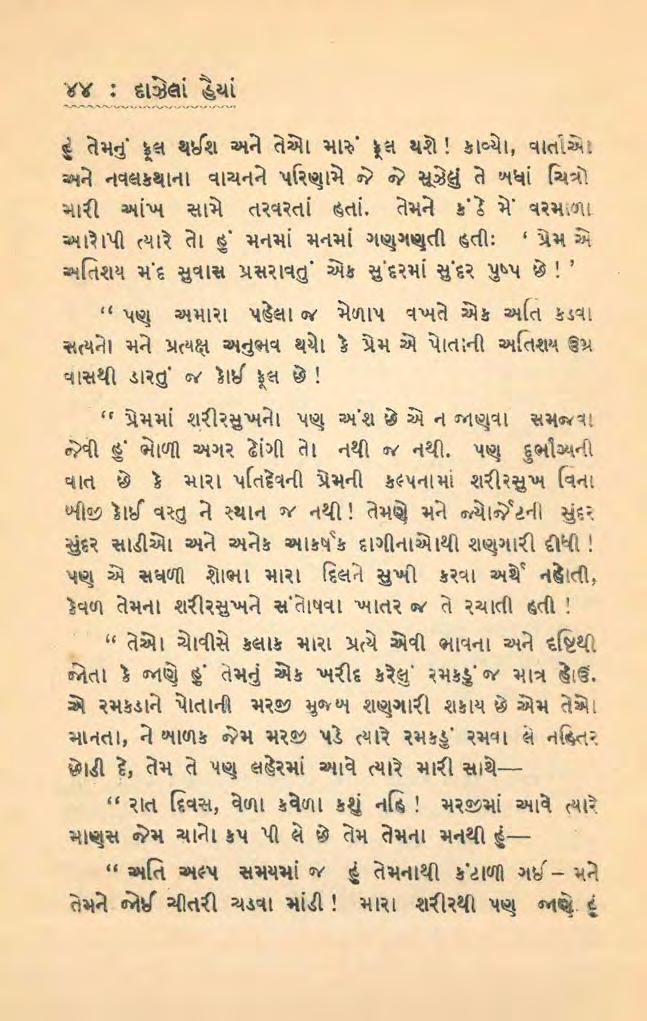 ૪૪ : દાઝેલાં હૈયાં
હું તેમનું ફૂલ થઈશ અને તેઓ મારું ફૂલ થશે! કાવ્યો, વાર્તાઓ
અને નવલકથાના વાચનને પરિણામે જે જે સૂઝેલું તે બધાં ચિત્રો
મારી આંખ સામે તરવરતાં હતાં. તેમને કંઠે મેં વરમાળા
આરોપી ત્યારે તો હું મનમાં મનમાં ગણગણતી હતીઃ ‘ પ્રેમ એ
અતિશય મંદ સુવાસ પ્રસરાવતું એક સુંદરમાં સુંદર પુષ્પ છે! ’
“ પણ અમારા પહેલા જ મેળાપ વખતે એક અતિ કડવા
સત્યનો મને પ્રત્યક્ષ અનુભવ થયો કે પ્રેમ એ પોતાની અતિશય ઉગ્ર
વાસથી ડારતું જ કોઈ ફૂલ છે!
“ પ્રેમમાં શરીરસુખનો પણ અંશ છે એ ન જાણવા સમજવા
જેવી હું ભોળી અગર ઢોંગી તો નથી જ નથી. પણ દુર્ભાગ્યની
વાત છે કે મારા પતિદેવની પ્રેમની કલ્પનામાં શરીરસુખ વિના
બીજી કોઈ વસ્તુ ને સ્થાન જ નથી! તેમણે મને જ્યોર્જેટની સુંદર
સુંદર સાડીઓ અને અનેક આકર્ષક દાગીનાઓથી શણગારી દીધી!
પણ એ સઘળી શોભા મારા દિલને સુખી કરવા અર્થે નહોતી,
કેવળ તેમના શરીરસુખને સંતોષવા ખાતર જ તે રચાતી હતી!
“ તેઓ ચોવીસે કલાક મારા પ્રત્યે એવી ભાવના અને દૃષ્ટિથી
જોતા કે જાણે હું તેમનું એક ખરીદ કરેલું રમકડું જ માત્ર હોઉં.
એ રમકડાને પોતાની મરજી મુજબ શણગારી શકાય છે એમ તેઓ
માનતા, ને બાળક જેમ મરજી પડે ત્યારે રમકડું રમવા લે નહિતર
છોડી દે, તેમ તે પણ લહેરમાં આવે ત્યારે મારી સાથે—
“ રાત દિવસ, વેળા કવેળા કશું નહિ! મરજીમાં આવે ત્યારે
માણસ જેમ ચાનો કપ પી લે છે તેમ તેમના મનથી હું—
“ અતિ અલ્પ સમયમાં જ હું તેમનાથી કંટાળી ગઈ – મને
તેમને જોઈ ચીતરી ચડવા માંડી! મારા શરીરથી પણ જાણે હું